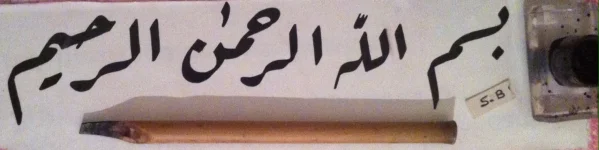 بسم الله الرحمٰن الرحيم
S.B